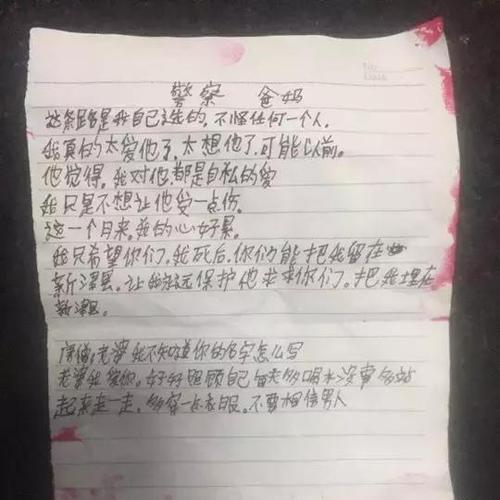 警察 爸妈
这条路是我自己选的，不怪任何一个人，
我真的太爱他了，太想他了，可能以前。
他觉得，我对他，都是自私的爱
我只是不想让他受一点伤。
这一个月来，我的心好累。
我只希望你们，我死后，你们能把我留在
新津县，让我永远保护他求求你们。把我埋在
新津县。
老婆我不知道你的名字怎么写
老婆我爱你，好好照顾自己每天多喝水没事多站
起来走一走，多穿一点衣服。不要相信男人